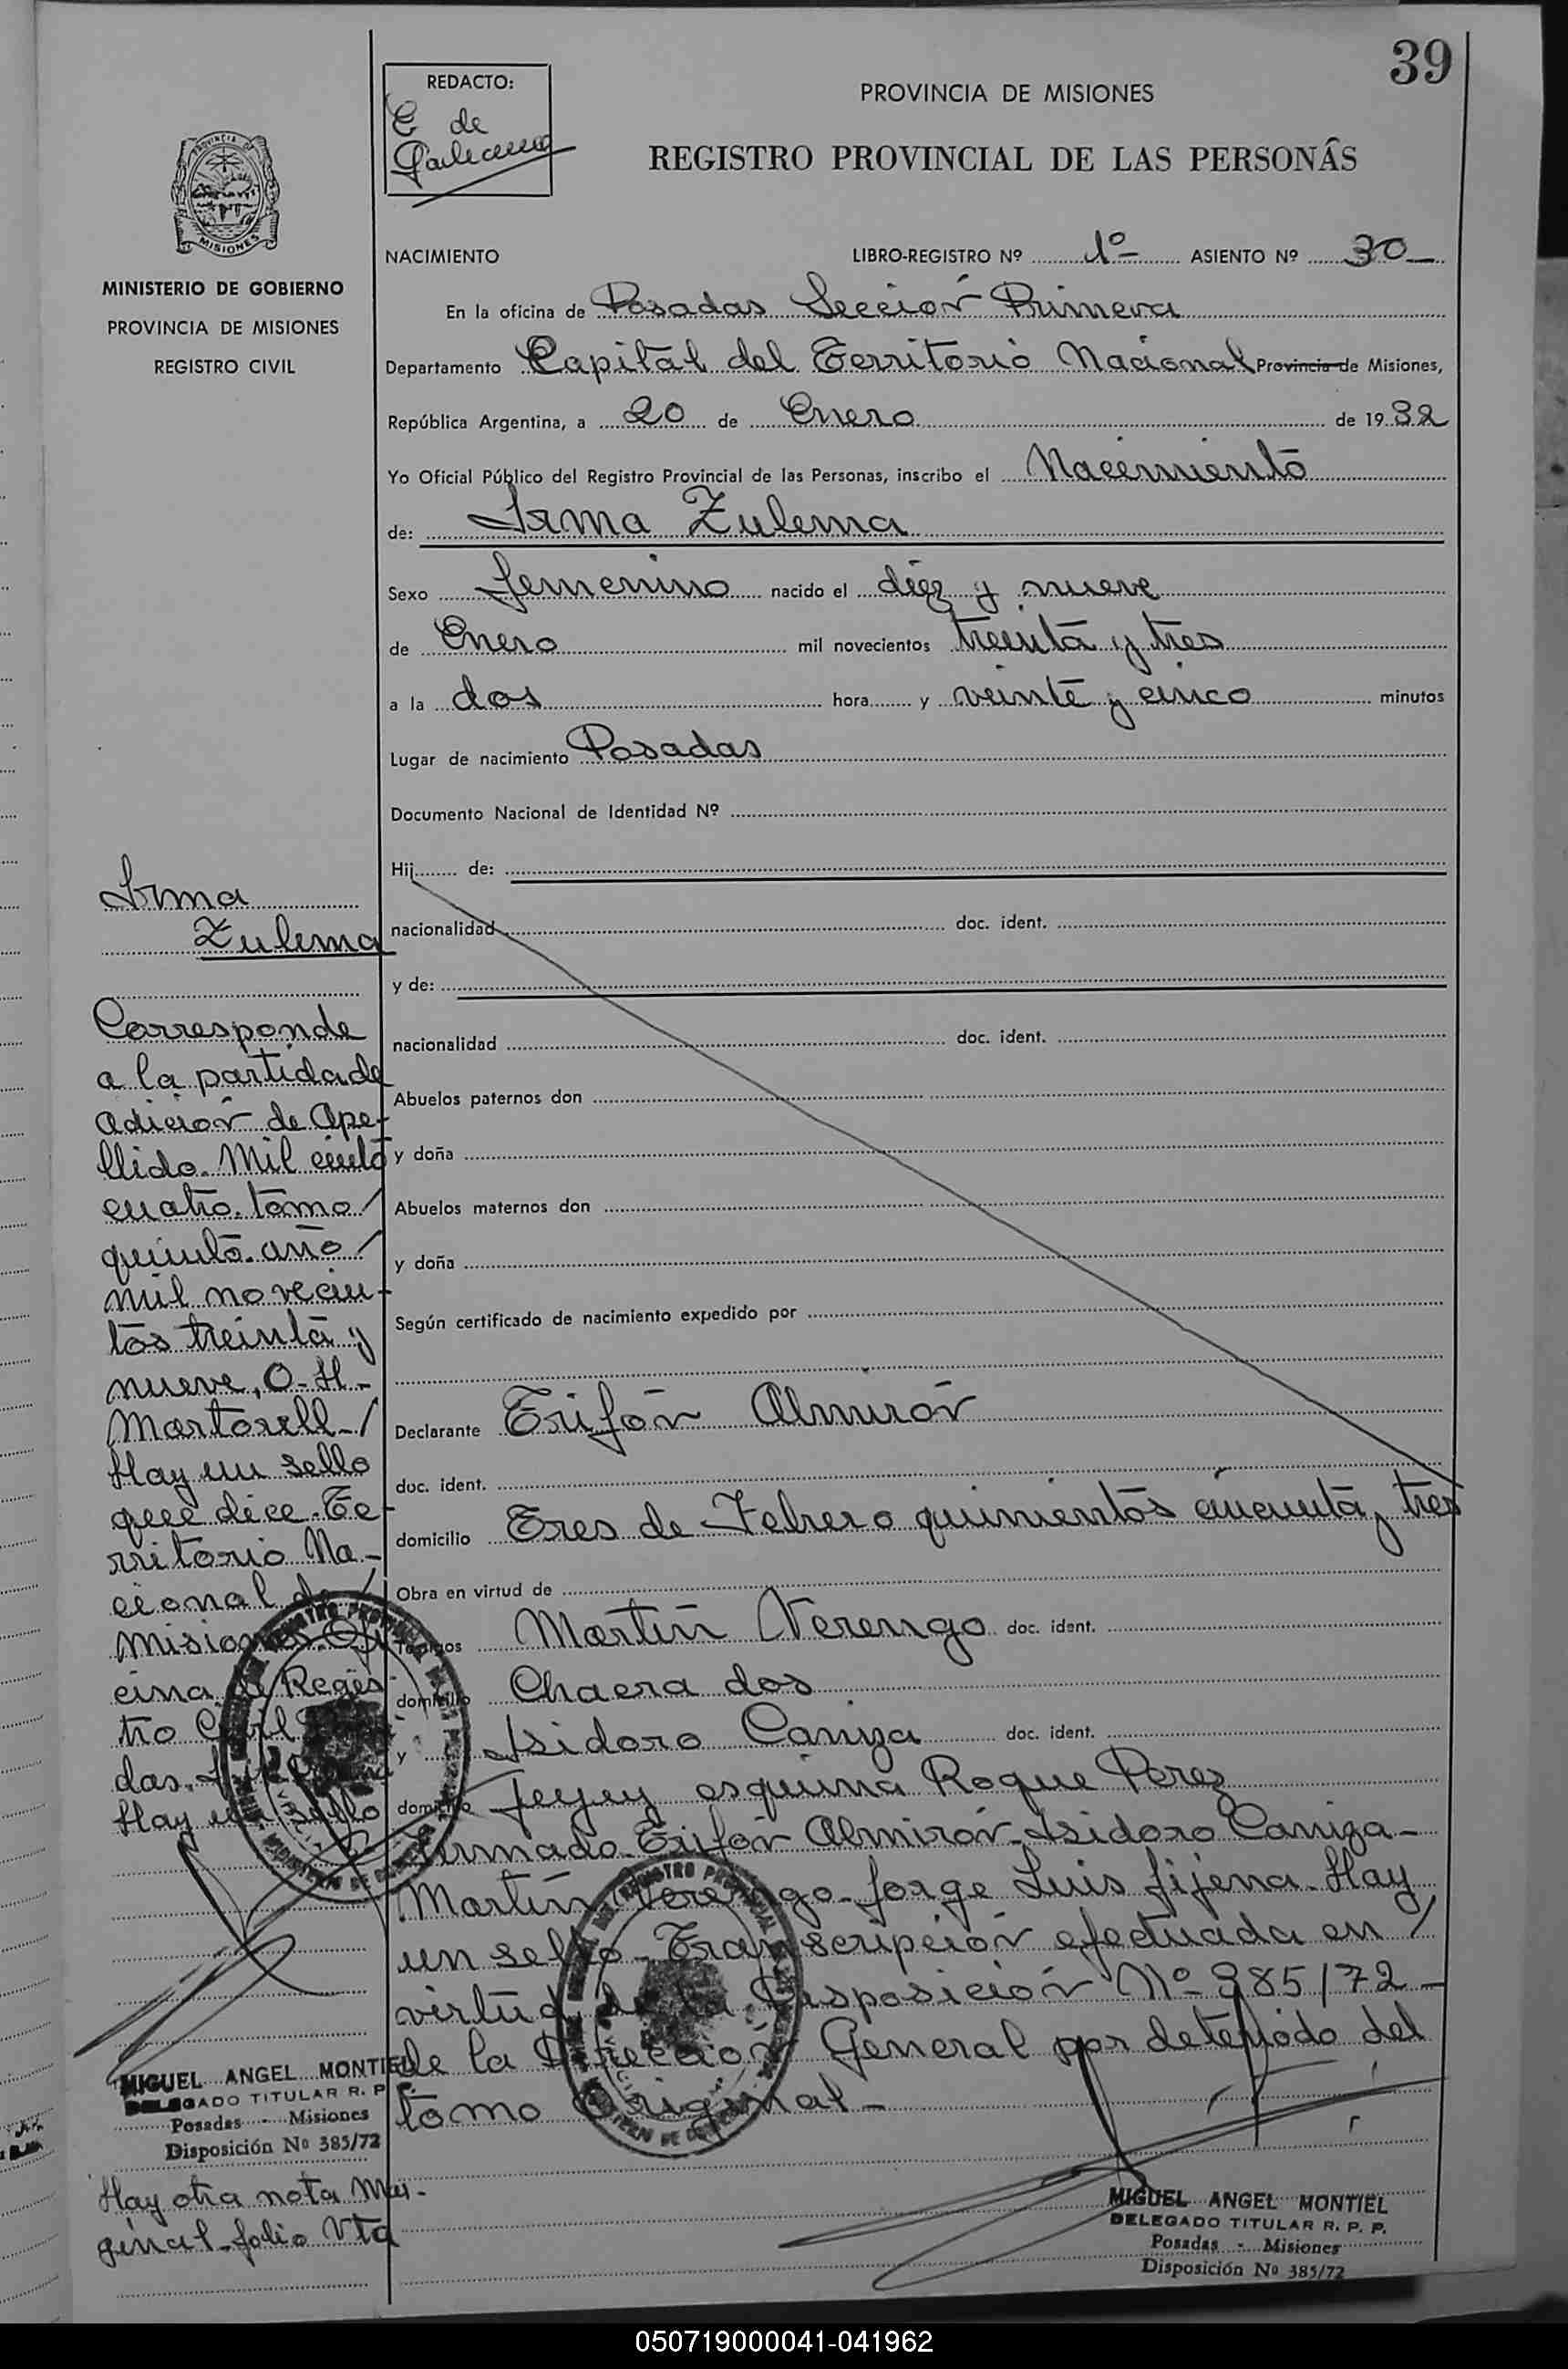 39
REDACTO:
E de
Galeano
PROVINCIA DE MISIONES
REGISTRO PROVINCIAL DE LAS PERSONAS
MISIONES
MINISTERIO DE GOBIERNO
PROVINCIA DE MISIONES
REGISTRO CIVIL
NACIMIENTO LIBRO-REGISTRO Nº 1º ASIENTO Nº 30
En la oficina de Posadas Sección Primera
Departamento Capital del Territorio Nacional Provincia de Misiones,
República Argentina, a 20 de Enero de 1932
Yo Oficial Público del Registro Provincial de las Personas, inscribo el Nacimiento
de: Irma Zulema
Sexo femenino nacido el diez y nueve
de Enero mil novecientos treinta y tres
a la dos hora y veinte y cinco minutos
Lugar de nacimiento Posadas
Documento Nacional de Identidad Nº
Hij de:
nacionalidad doc. ident.
y de:
nacionalidad doc. ident.
Abuelos paternos don
y doña
Abuelos maternos don
y doña
Según certificado de nacimiento expedido por
Declarante Trifón Almirón
doc. ident.
domicilio Tres de Febrero quinientos cincuenta y tres
Obra en virtud de
Testigos Martín Verengo doc. ident.
domicilio Chacra dos
y Isidoro Caniza doc. ident.
domicilio Jujuy esquina Roque Perez
firmado Trifón Almirón Isidoro Caniza-
Martín Verengo-Jorge Luis Jijena-Hay
un sello-Transcripción efectuada en /
virtud de la Disposición Nº 385/72-
de la Dirección General por deteriodo del
tomo Original-
MIGUEL ANGEL MONTIEL
DELEGADO TITULAR R. P. P.
Posadas - Misiones
Disposición Nº 385/72
Irma
Zulema
Corresponde
a la partida de
adición de Ape-
llido. Mil ciento
cuatro. tomo /
quinto. año /
mil novecien-
tos treinta y
nueve, O-H-
Martorell-/
Hay un sello
que dice. Te-
rritorio Na-
cional de /
Misiones. Ofi
cina de Regis-
tro Civil
das.
Hay un sello
MIGUEL ANGEL MONTIEL
DELEGADO TITULAR R. P.
Posadas - Misiones
Disposición Nº 385/72
Hay otra nota Mar-
ginal-folio Vta
050719000041-041962